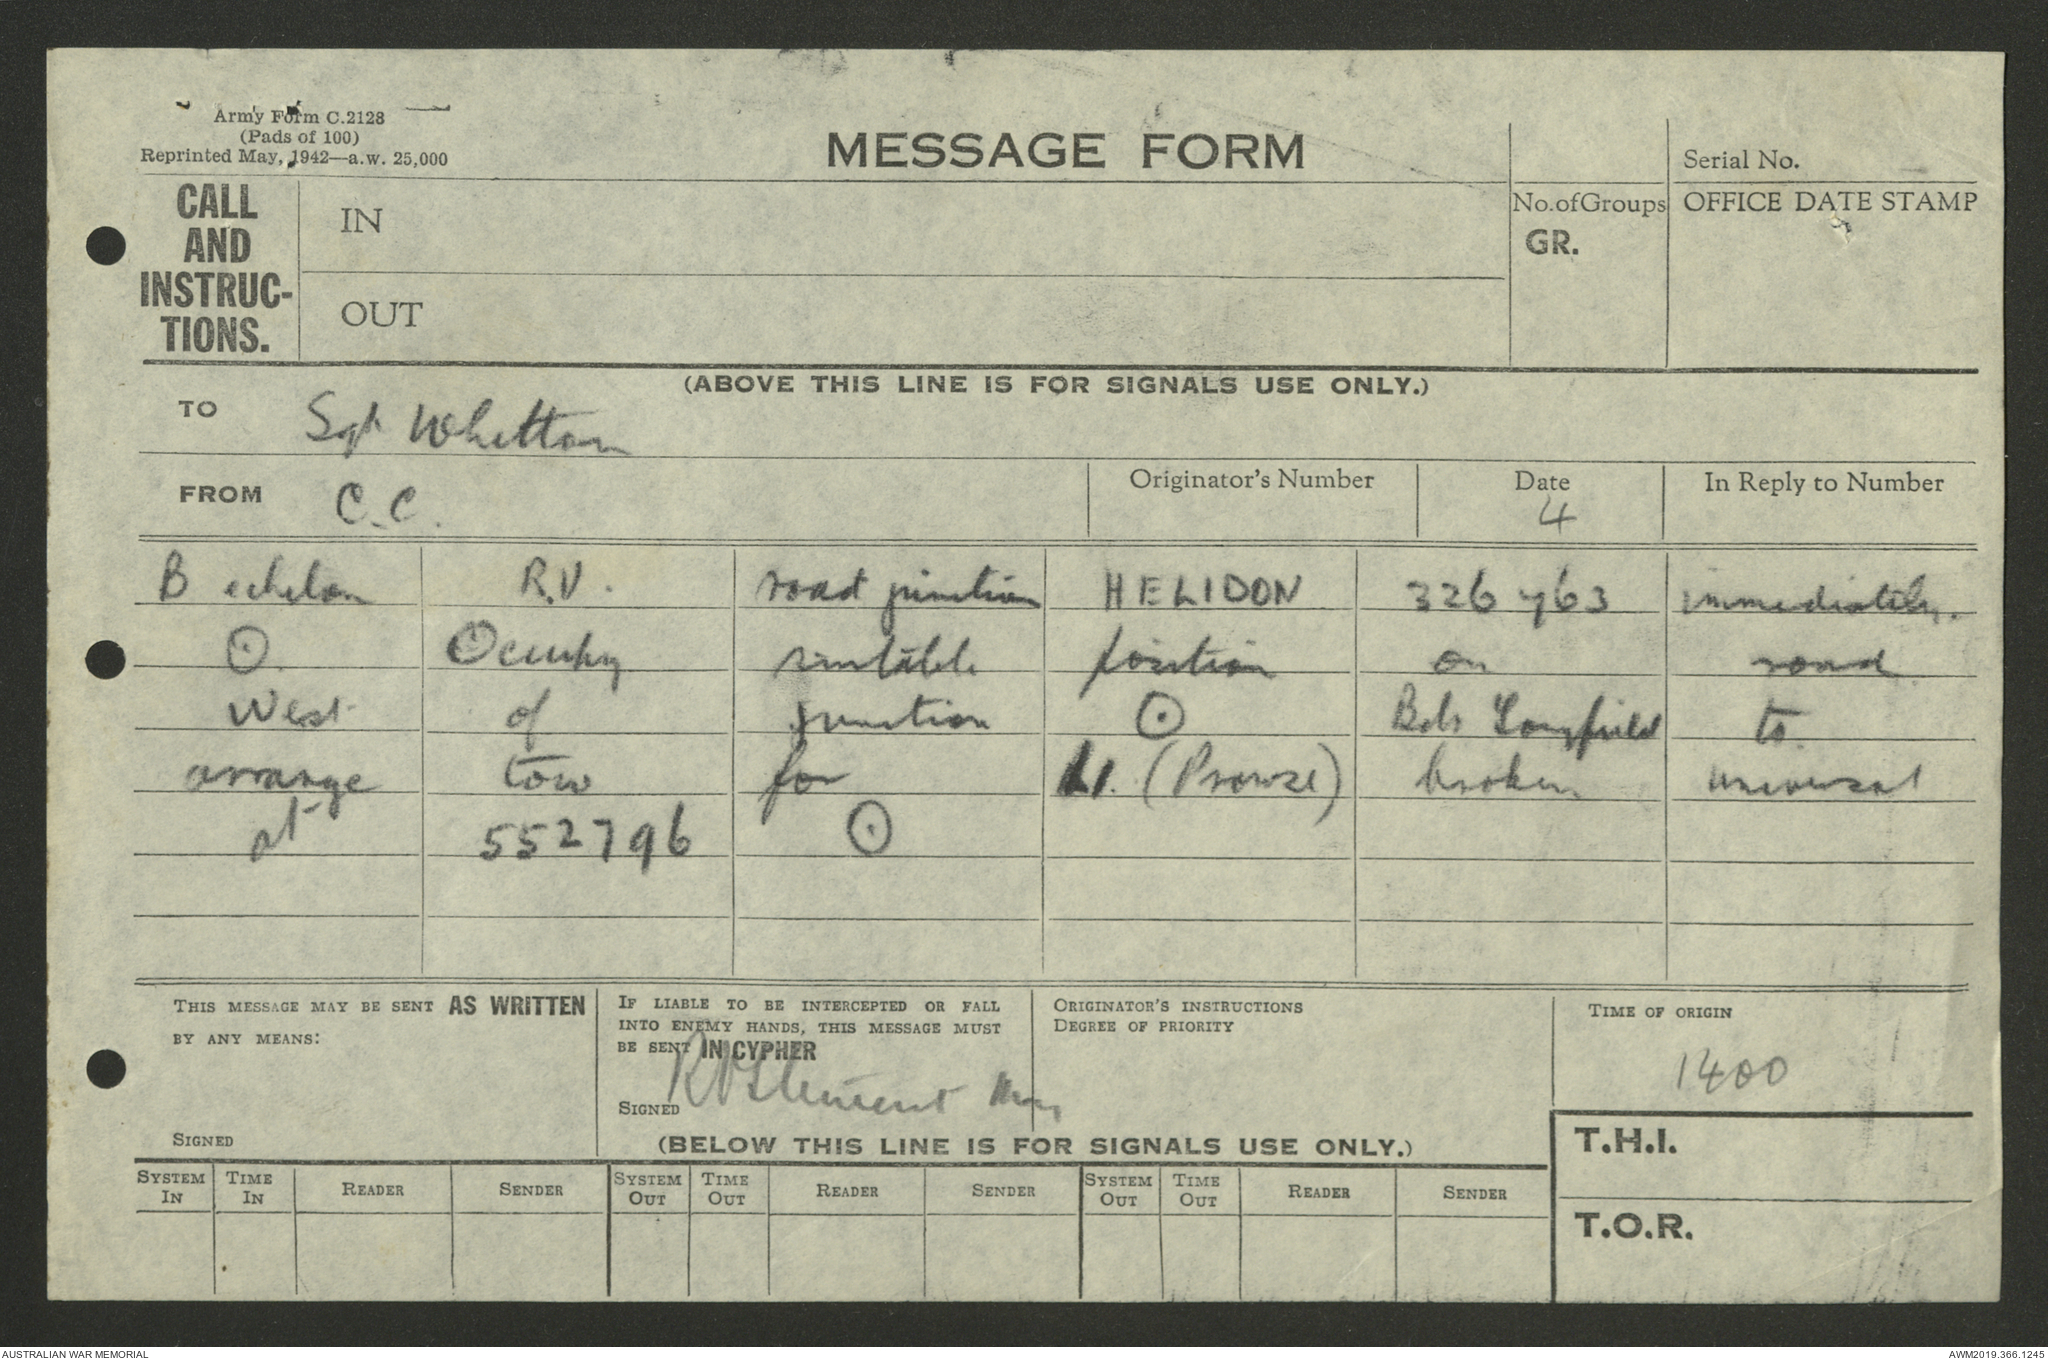 Army Form C.2128
(Pads of 100)
Reprinted May, 1942—a.w. 25,000
MESSAGE FORM
Serial No.
CALL AND INSTRUC-TIONS.
IN
No.ofGroups
GR.
OFFICE DATE STAMP
OUT
(ABOVE THIS LINE IS FOR SIGNALS USE ONLY.)
TO Sgt Whitton
FROM C.C.
Originator's Number
Date 4
In Reply to Number
B echelon R.V. road junction HELIDON 326763 immediately.
⊙ Occupy suitable position on road
West of junction ⊙ Bob Longfield to
arrange tow for (Prowse) broken universal
at 552796 ⊙
THIS MESSAGE MAY BE SENT AS WRITTEN
BY ANY MEANS:
SIGNED
IF LIABLE TO BE INTERCEPTED OR FALL
INTO ENEMY HANDS, THIS MESSAGE MUST
BE SENT IN CYPHER
SIGNED
ORIGINATOR'S INSTRUCTIONS
DEGREE OF PRIORITY
TIME OF ORIGIN
1400
(BELOW THIS LINE IS FOR SIGNALS USE ONLY.)
T.H.I.
SYSTEM IN TIME IN READER SENDER SYSTEM OUT TIME OUT READER SENDER SYSTEM OUT TIME OUT READER SENDER
T.O.R.
AUSTRALIAN WAR MEMORIAL
AWM2019.366.1245